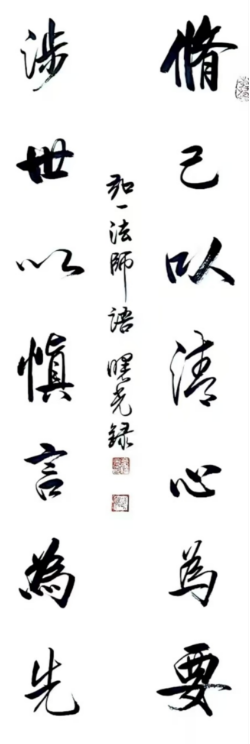 脩己以清心為要
涉世以慎言為先
弘一法師語 曙光録